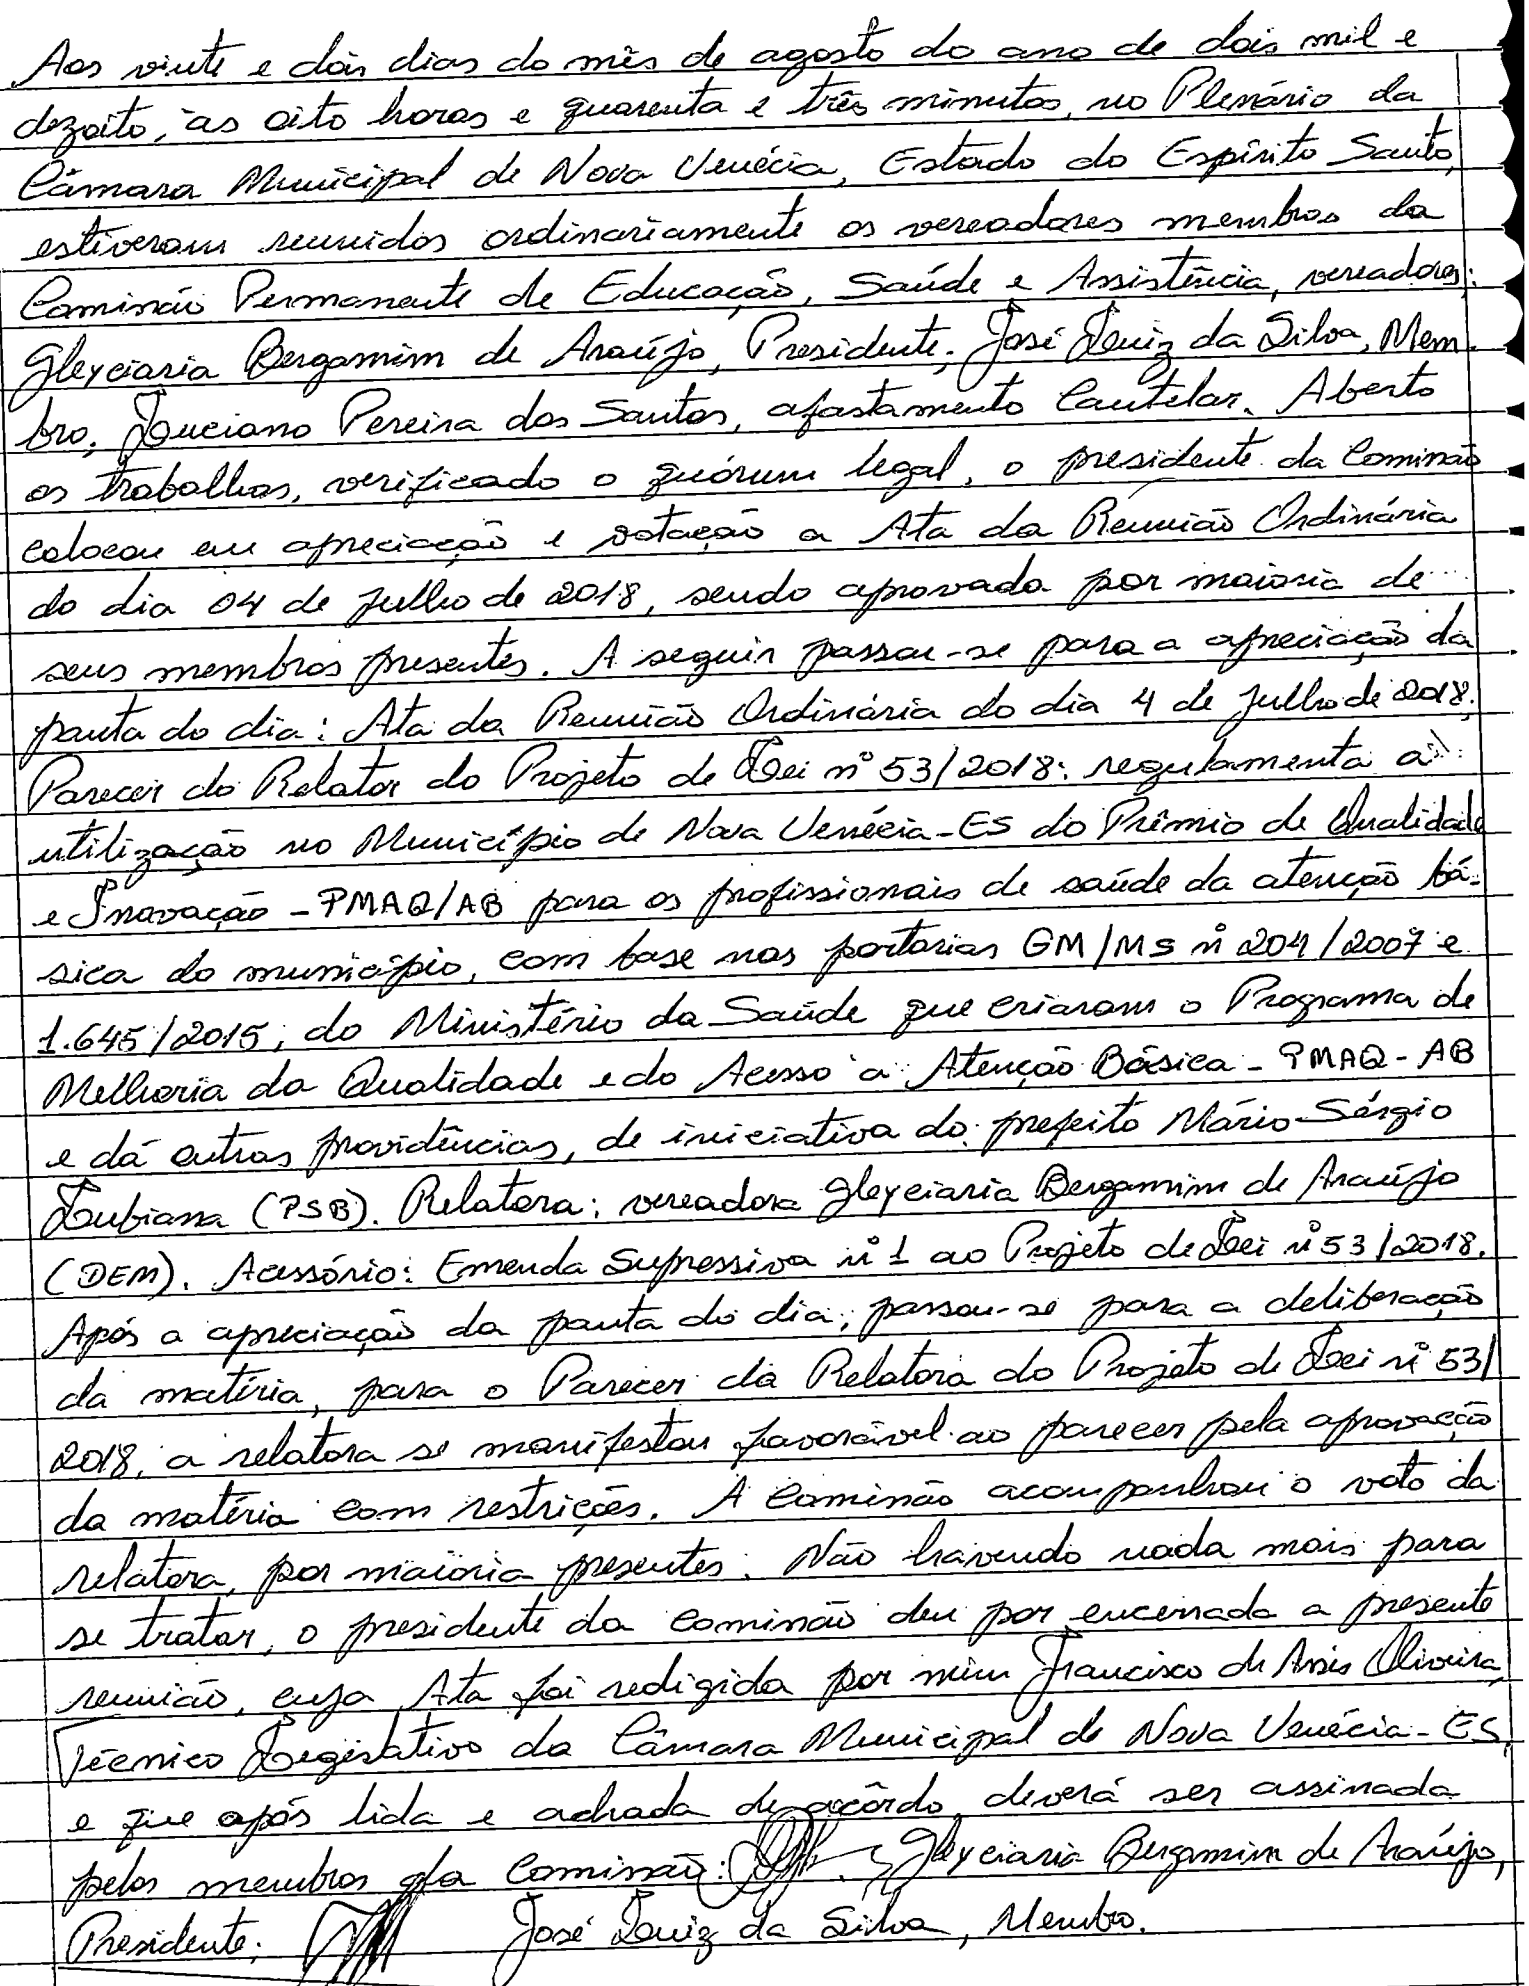 Aos vinte e dois dias do mês de agosto do ano de dois mil e
dezoito, às oito horas e quarenta e três minutos, no Plenário da
Câmara Municipal de Nova Venécia, Estado do Espírito Santo,
estiveram reunidos ordinariamente os vereadores membros da
Comissão Permanente de Educação, Saúde e Assistência, vereadores:
Gleyciaria Bergamim de Araújo, Presidente; José Luiz da Silva, Mem-
bro; Luciano Pereira dos Santos, afastamento Cautelar. Aberto
os trabalhos, verificado o quórum legal, o presidente da Comissão
colocou em apreciação e votação a Ata da Reunião Ordinária
do dia 04 de julho de 2018, sendo aprovada por maioria de
seus membros presentes. A seguir passou-se para a apreciação da
pauta do dia: Ata da Reunião Ordinária do dia 4 de julho de 2018;
Parecer do Relator do Projeto de Lei nº 53/2018: regulamenta a
utilização no Município de Nova Venécia-ES do Prêmio de Qualidade
e Inovação - PMAQ/AB para os profissionais de saúde da atenção bá-
sica do município, com base nas portarias GM/MS nº 204/2007 e
1.645/2015, do Ministério da Saúde que criaram o Programa de
Melhoria da Qualidade e do Acesso a Atenção Básica - PMAQ-AB
e dá outras providências, de iniciativa do prefeito Mário Sérgio
Lubiana (PSB). Relatora: vereadora Gleyciaria Bergamim de Araújo
(DEM). Acessório: Emenda Supressiva nº 1 ao Projeto de Lei nº 53/2018.
Após a apreciação da pauta do dia, passou-se para a deliberação
da matéria, para o Parecer da Relatora do Projeto de Lei nº 53/
2018, a relatora se manifestou favorável ao parecer pela aprovação
da matéria com restrições. A Comissão acompanhou o voto da
relatora, por maioria presentes. Não havendo nada mais para
se tratar, o presidente da comissão deu por encerrada a presente
reunião, cuja Ata foi redigida por mim Francisco de Assis Oliveira,
Técnico Legislativo da Câmara Municipal de Nova Venécia-ES,
e que após lida e achada de acôrdo, deverá ser assinada
pelos membros da Comissão: Gleyciaria Bergamim de Araújo,
Presidente; José Luiz da Silva, Membro.